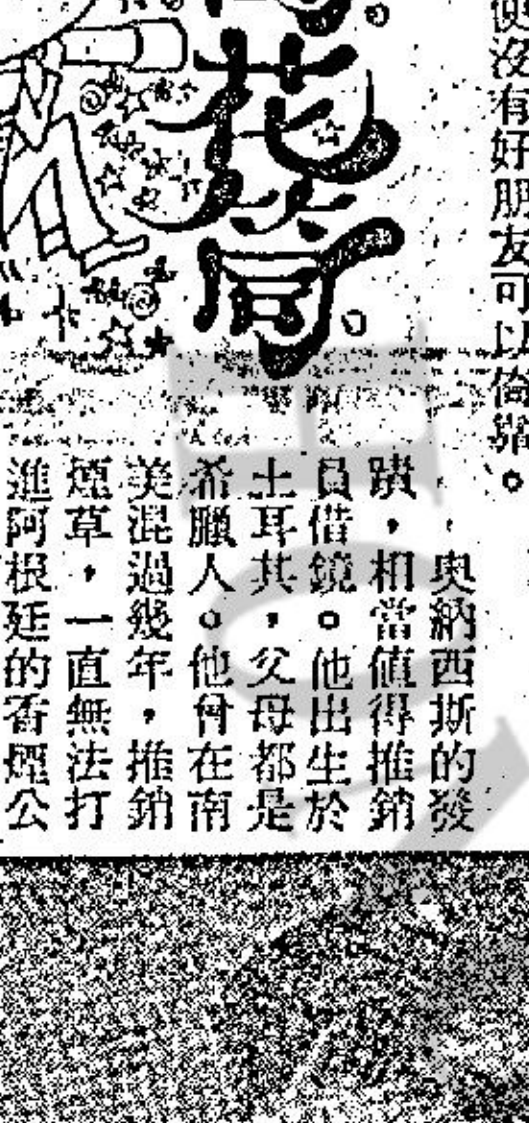 便沒有好朋友可以倚靠。
花筒
奧納西斯的發
蹟，相當值得推銷
員借鏡。他出生於
土耳其，父母都是
希臘人。他曾在南
美混過幾年，推銷
煙草，一直無法打
進阿根廷的香煙公